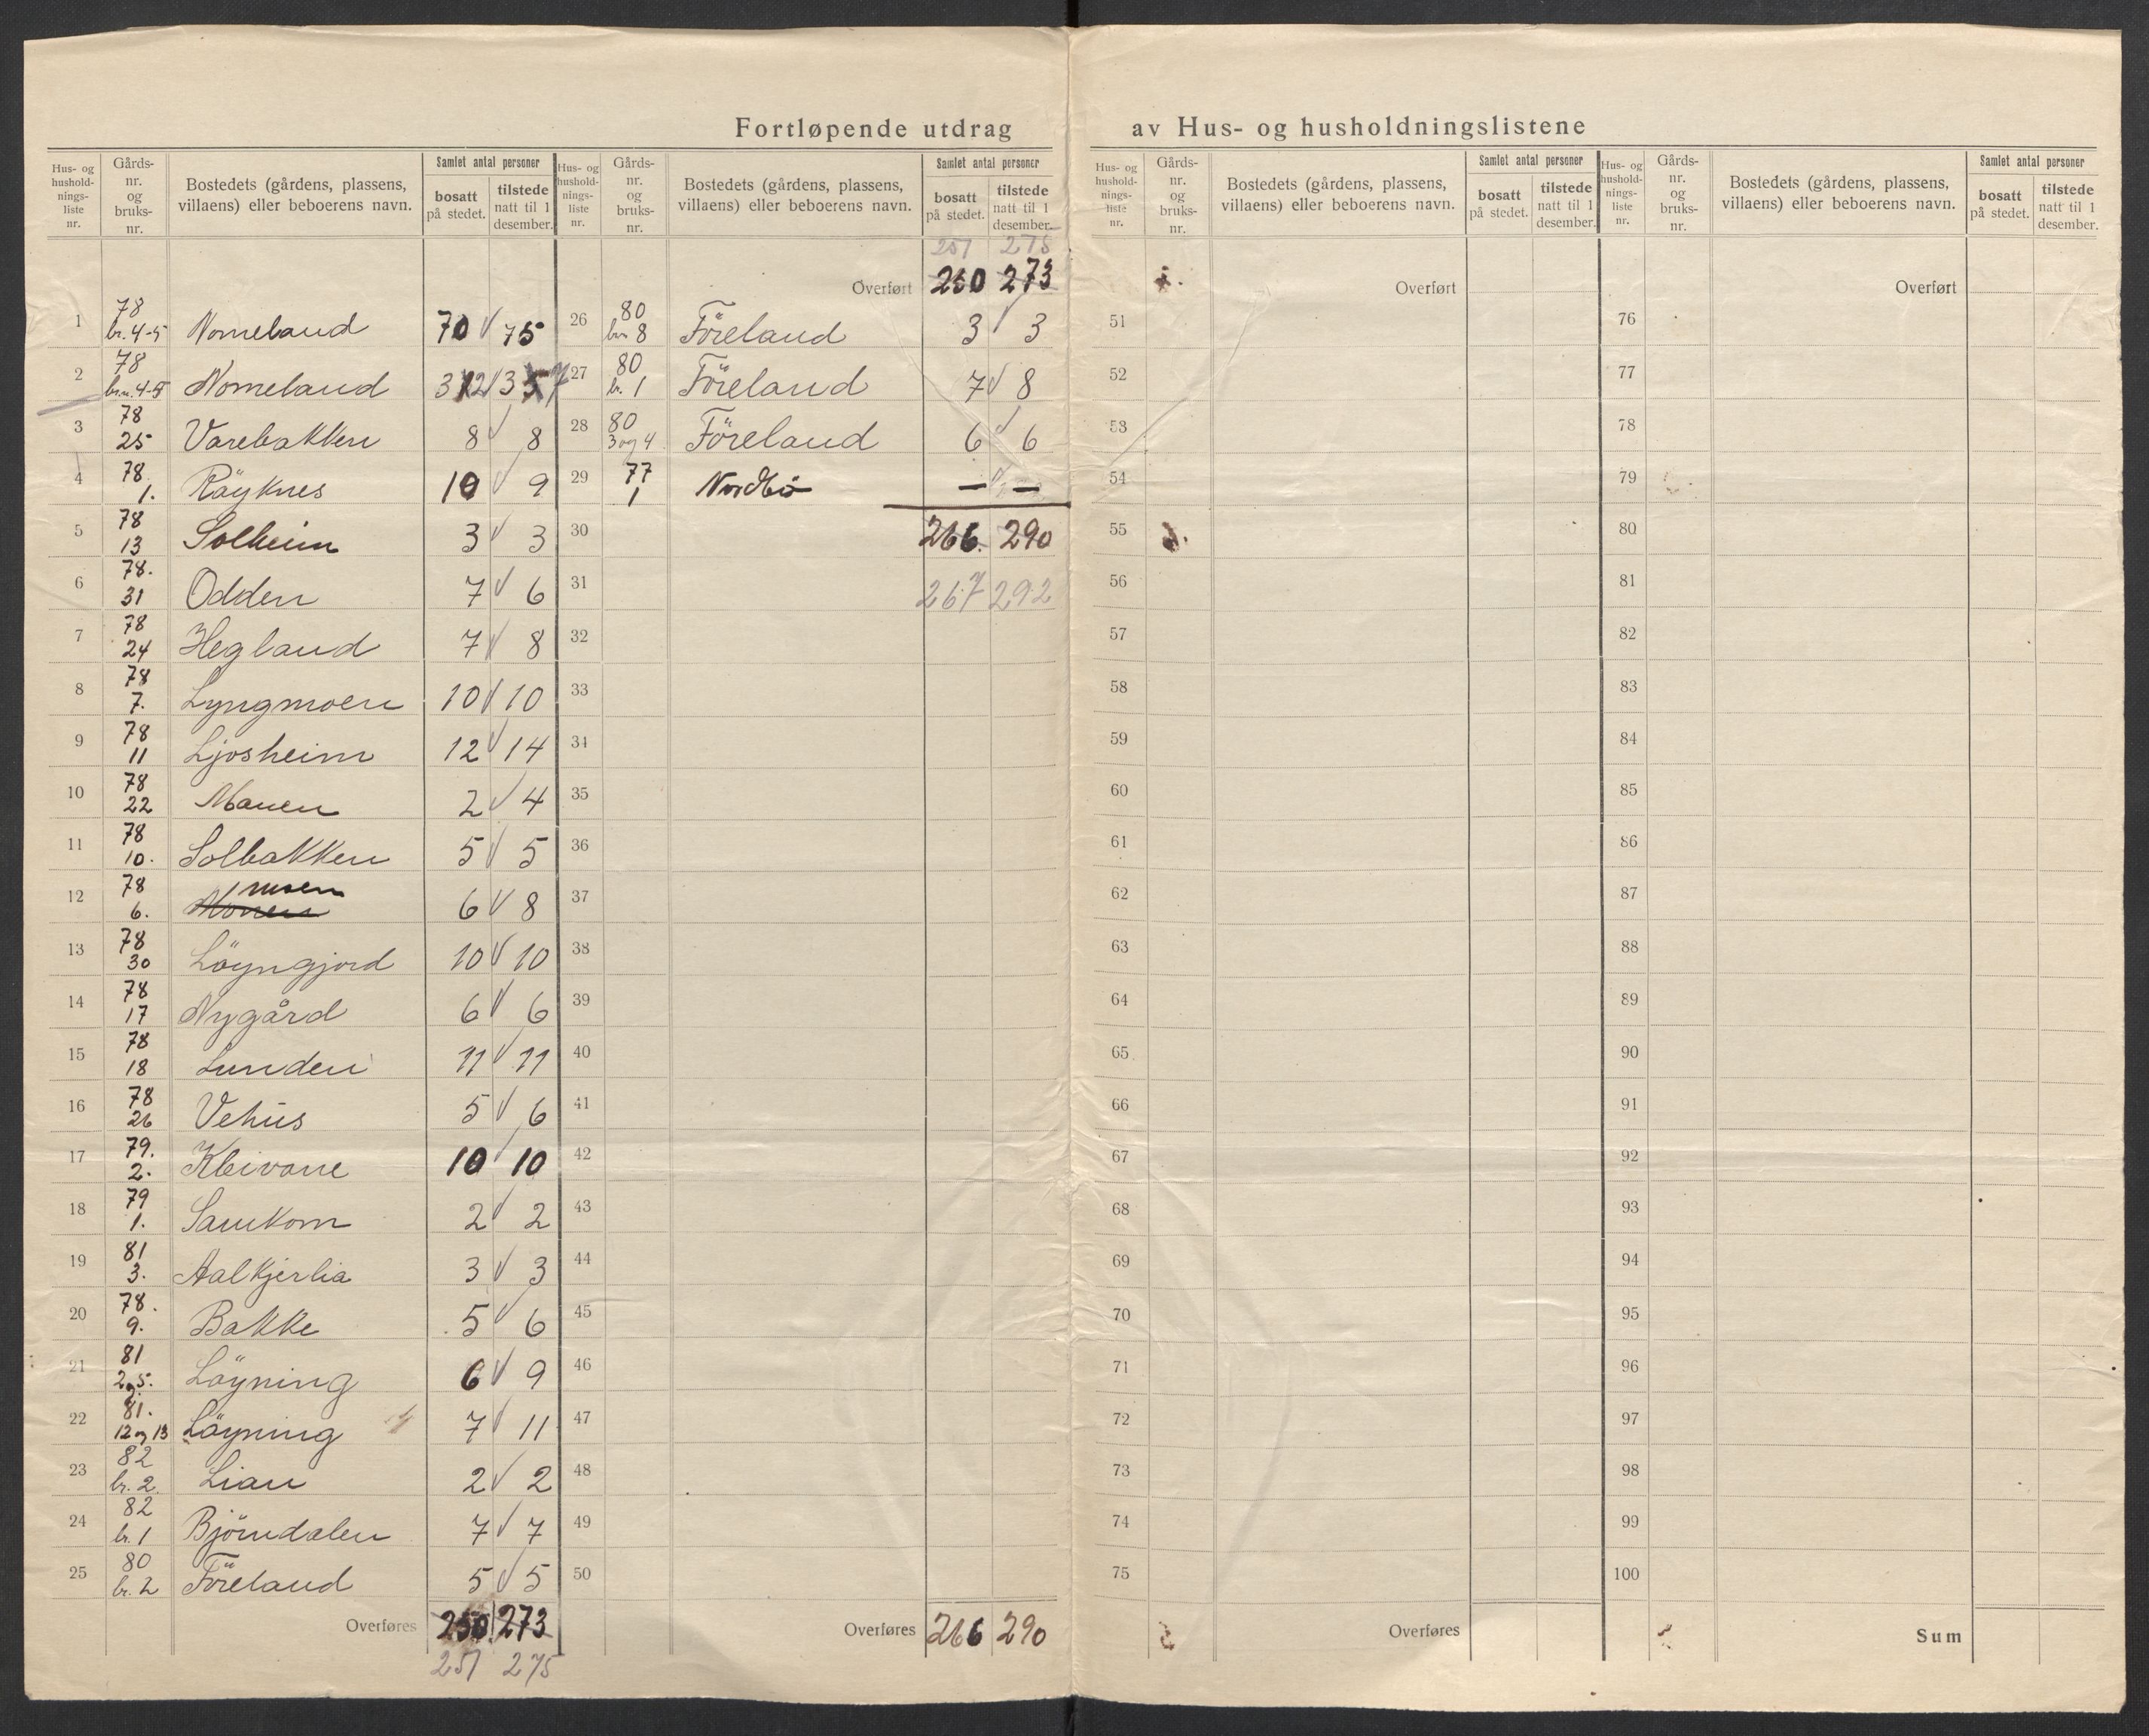 Fortløpende utdrag av Hus- og husholdningslistene
Hus- og hushold-nings-liste nr. Gårds-nr. og bruks-nr. Bostedets (gårdens, plassens, villaens) eller beboerens navn. Samlet antal personer bosatt på stedet. tilstede natt til 1 desember.
1 78 br. 4-5 Nomeland 70 75
2 78 br.n. 4-5 Nomeland
3 78 25 Varebakken 8 8
4 78 1. Røyknes 10 9
5 78 13 Solheim 3 3
6 78. 31 Odden 7 6
7 78 24 Hegland 7 8
8 78 7. Lyngmoen 10 10
9 78 11 Ljosheim 12 14
10 78 22 Monen 2 4
11 78 10. Solbakken 5 5
12 78 6. Monen moen 6 8
13 78 30 Löyngjord 10 10
14 78 17 Nygård 6 6
15 78 18 Lunden 11 11
16 78 26 Vehus 5 6
17 79. 2. Kleivane 10 10
18 79 1. Samkom 2 2
19 81 3. Aalkjerlia 3 3
20 78. 9. Bakke 5 6
21 81 2 og 5. Löyning 6 9
22 81. 12 og 13 Löyning 7 11
23 82 br. 2. Lian 2 2
24 82 br. 1 Björndalen 7 7
25 80 br. 2 Föreland 5 5
Overføres 250 273
251 275
Hus- og hushold-nings-liste nr. Gårds-nr. og bruks-nr. Bostedets (gårdens, plassens, villaens) eller beboerens navn. Samlet antal personer bosatt på stedet. tilstede natt til 1 desember.
251 275
Overført 250 273
26 80 br 8 Föreland 3 3
27 80 br. 1 Föreland 7 8
28 80 3 og 4 Föreland 6 6
29 77 1 Nordbö — —
30 266. 290
31 267 292
32
33
34
35
36
37
38
39
40
41
42
43
44
45
46
47
48
49
50
Overføres 266 290
Hus- og hushold-nings-liste nr. Gårds-nr. og bruks-nr. Bostedets (gårdens, plassens, villaens) eller beboerens navn. Samlet antal personer bosatt på stedet. tilstede natt til 1 desember.
Overført
51
52
53
54
55
56
57
58
59
60
61
62
63
64
65
66
67
68
69
70
71
72
73
74
75
Overføres
Hus- og hushold-nings-liste nr. Gårds-nr. og bruks-nr. Bostedets (gårdens, plassens, villaens) eller beboerens navn. Samlet antal personer bosatt på stedet. tilstede natt til 1 desember.
Overført
76
77
78
79
80
81
82
83
84
85
86
87
88
89
90
91
92
93
94
95
96
97
98
99
100
Sum